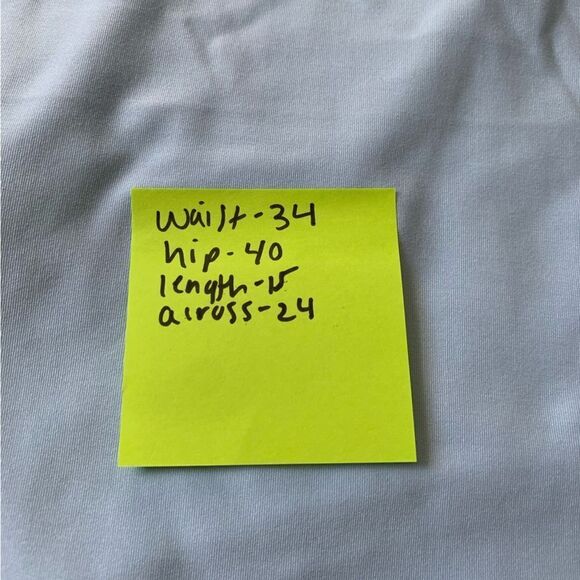 waist-34
hip-40
length-15
across-24